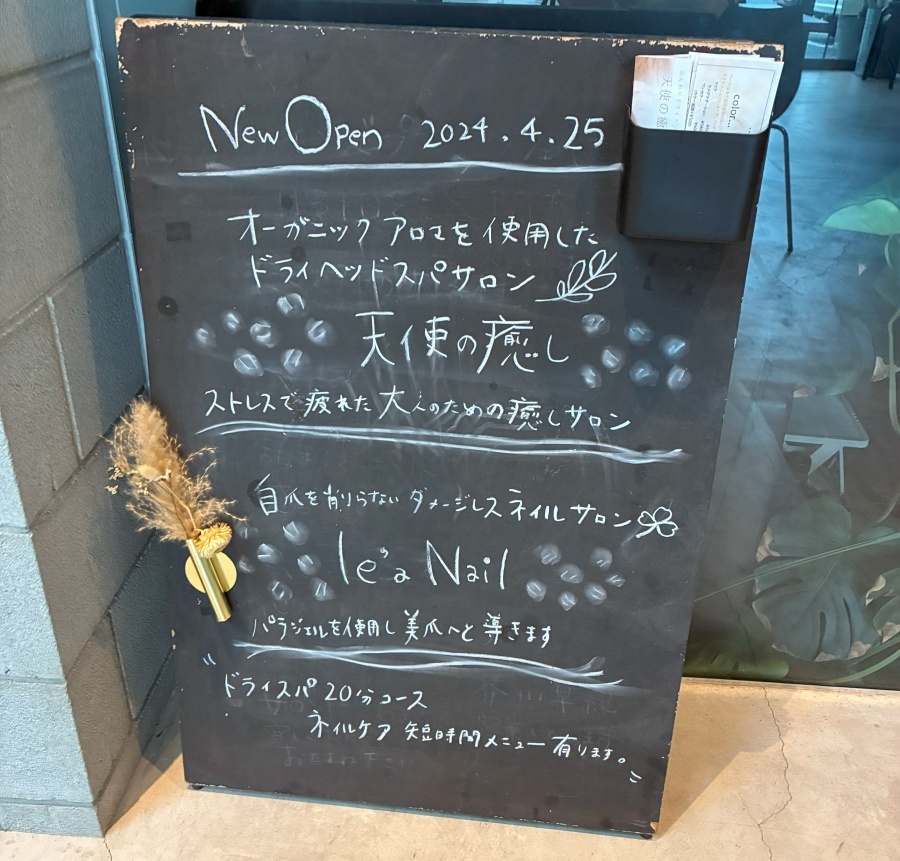 New Open 2024.4.25
オーガニックアロマを使用した
ドライヘッドスパサロン
天使の癒し
ストレスで疲れた大人のための癒しサロン
自爪を削らないダメージレスネイルサロン
le°a Nail
パラジェルを使用し美爪へと導きます
"ドライスパ20分コース
ネイルケア短時間メニュー有ります。"
天使の癒
color...